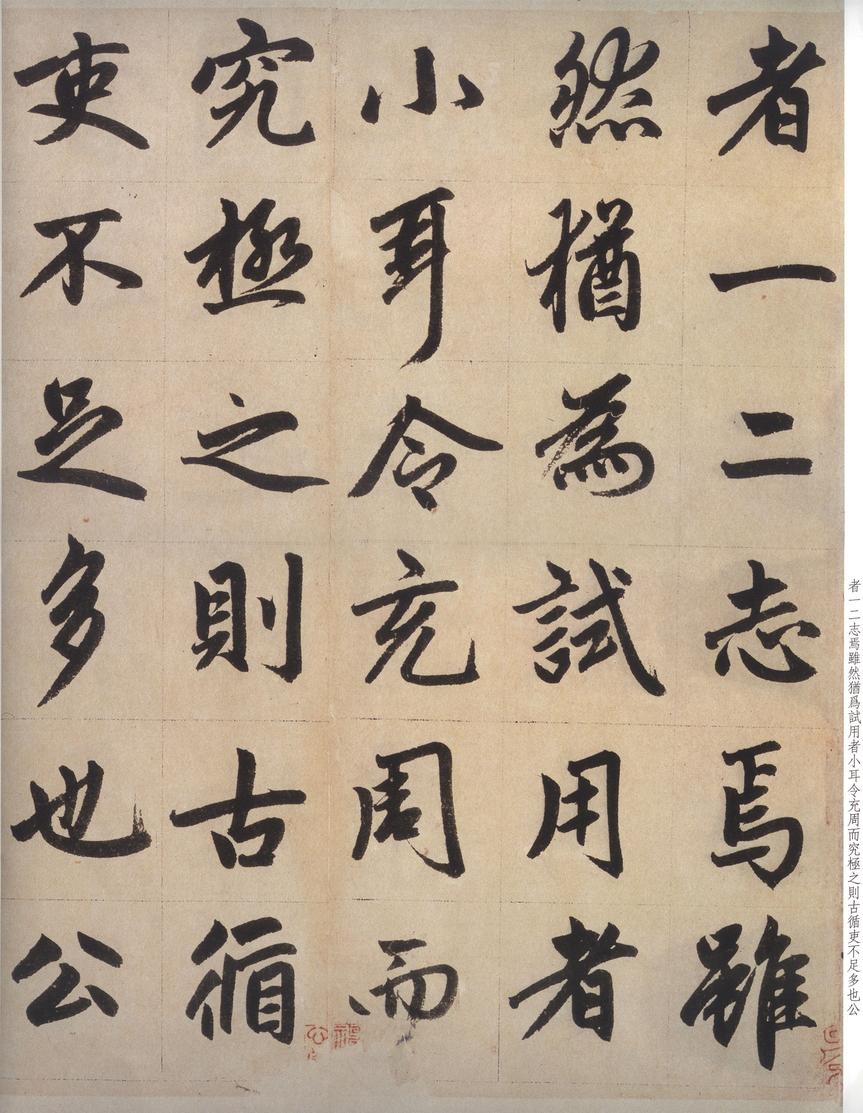 者一二志焉雖
然猶為試用者
小耳令充周而
究極之則古循
吏不足多也公
者一二志焉雖然猶爲試用者小耳令充周而究極之則古循吏不足多也公